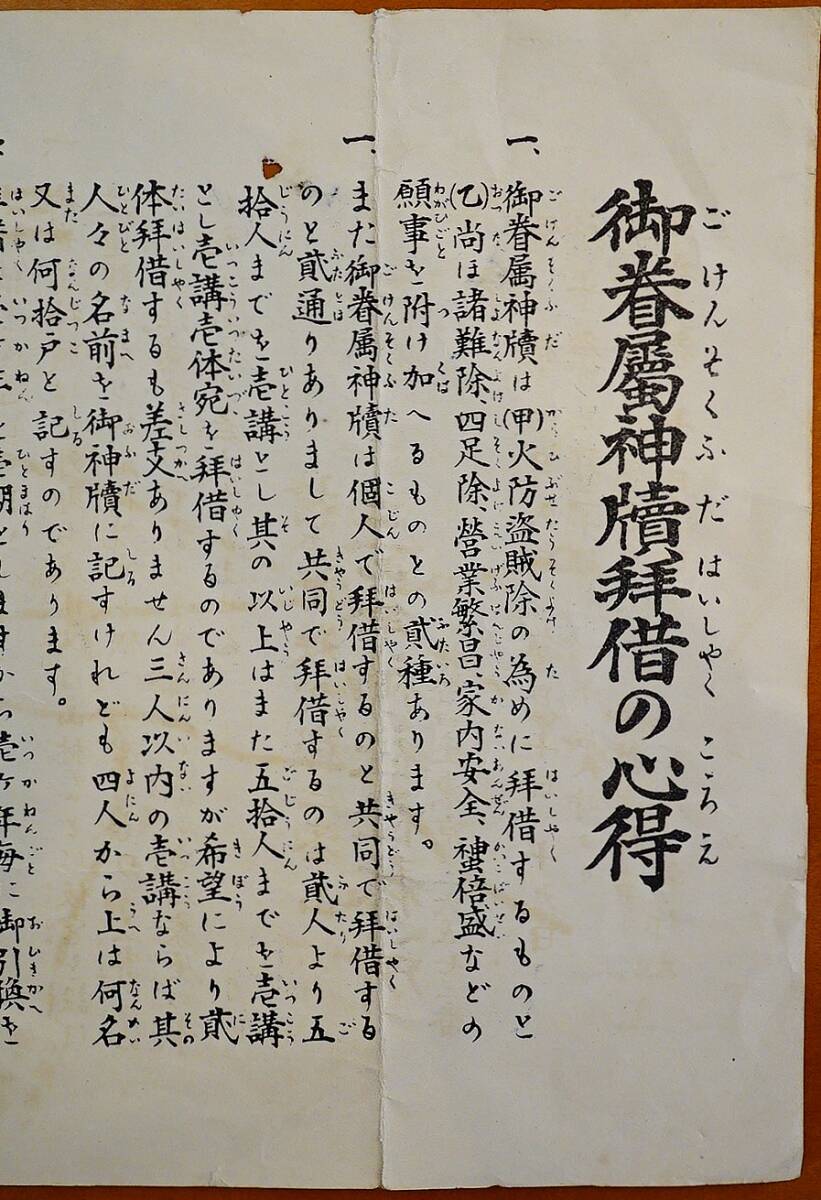 御眷屬神牘拜借の心得
一、御眷属神牘は(甲)火防盗賊除の為めに拜借するものと
(乙)尚ほ諸難除、四足除、營業繁昌、家内安全、蚕倍盛などの
願事を附け加へるものとの貳種あります。
一、また御眷属神牘は個人で拜借するのと共同で拜借する
のと貳通りありまして共同で拜借するのは貳人より五
拾人までを壱講とし其の以上はまた五拾人までを壱講
とし壱講壱体宛を拜借するのでありますが希望により貳
体拜借するも差支ありません三人以内の壱講ならば其
人々の名前を御神牘に記すけれども四人から上は何名
又は何拾戸と記すのであります。
壱ヶ年毎に御引換を